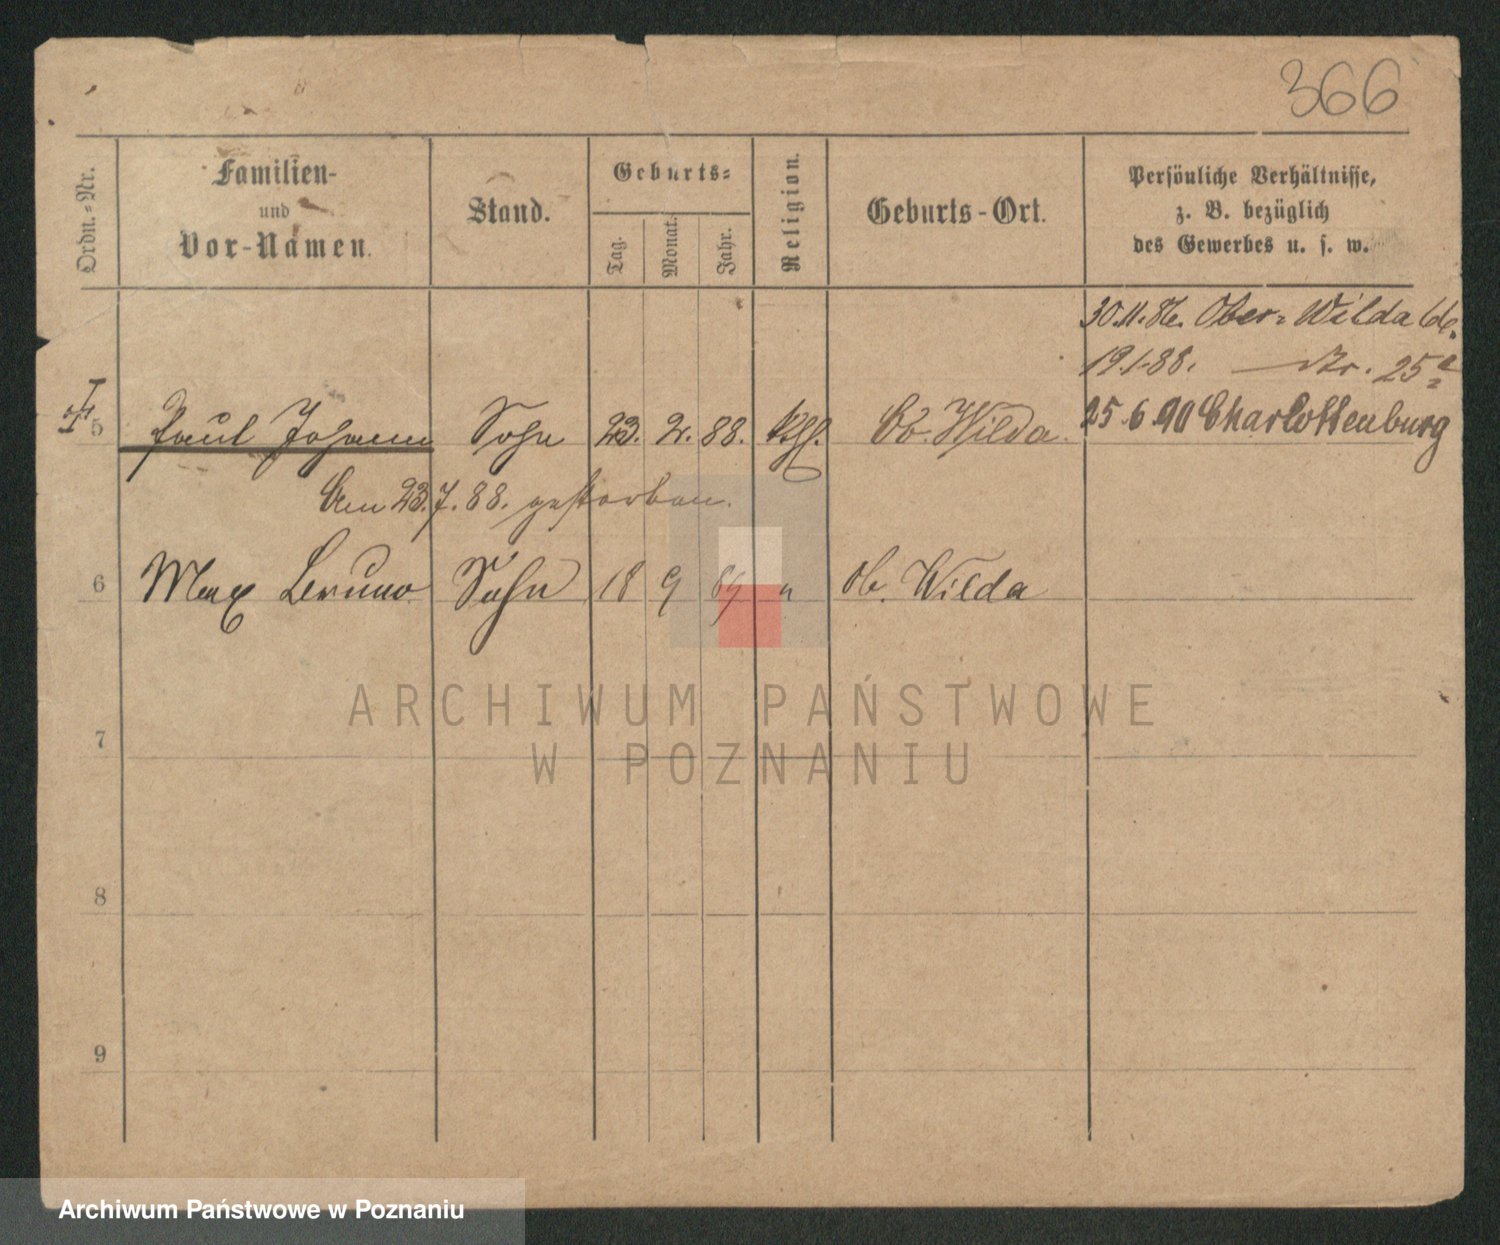 366
Ordn.-Nr.
Familien-
und
Vor-Namen.
Stand.
Geburts-
Tag.
Monat.
Jahr.
Religion.
Geburts-Ort.
Persönliche Verhältnisse,
z. B. bezüglich
des Gewerbes u. s. w.
30.11.86. Ober-Wilda
19.1.88. — Nr. 25a
5 Paul Johann Sohn 23. 2. 88. kth. Ob. Wilda. 25.6.90 Charlottenburg
Am 23.7.88. gestorben.
6 Max Bruno Sohn 18 9 89 " Ob. Wilda
ARCHIWUM PAŃSTWOWE
W POZNANIU
7
8
9
Archiwum Państwowe w Poznaniu